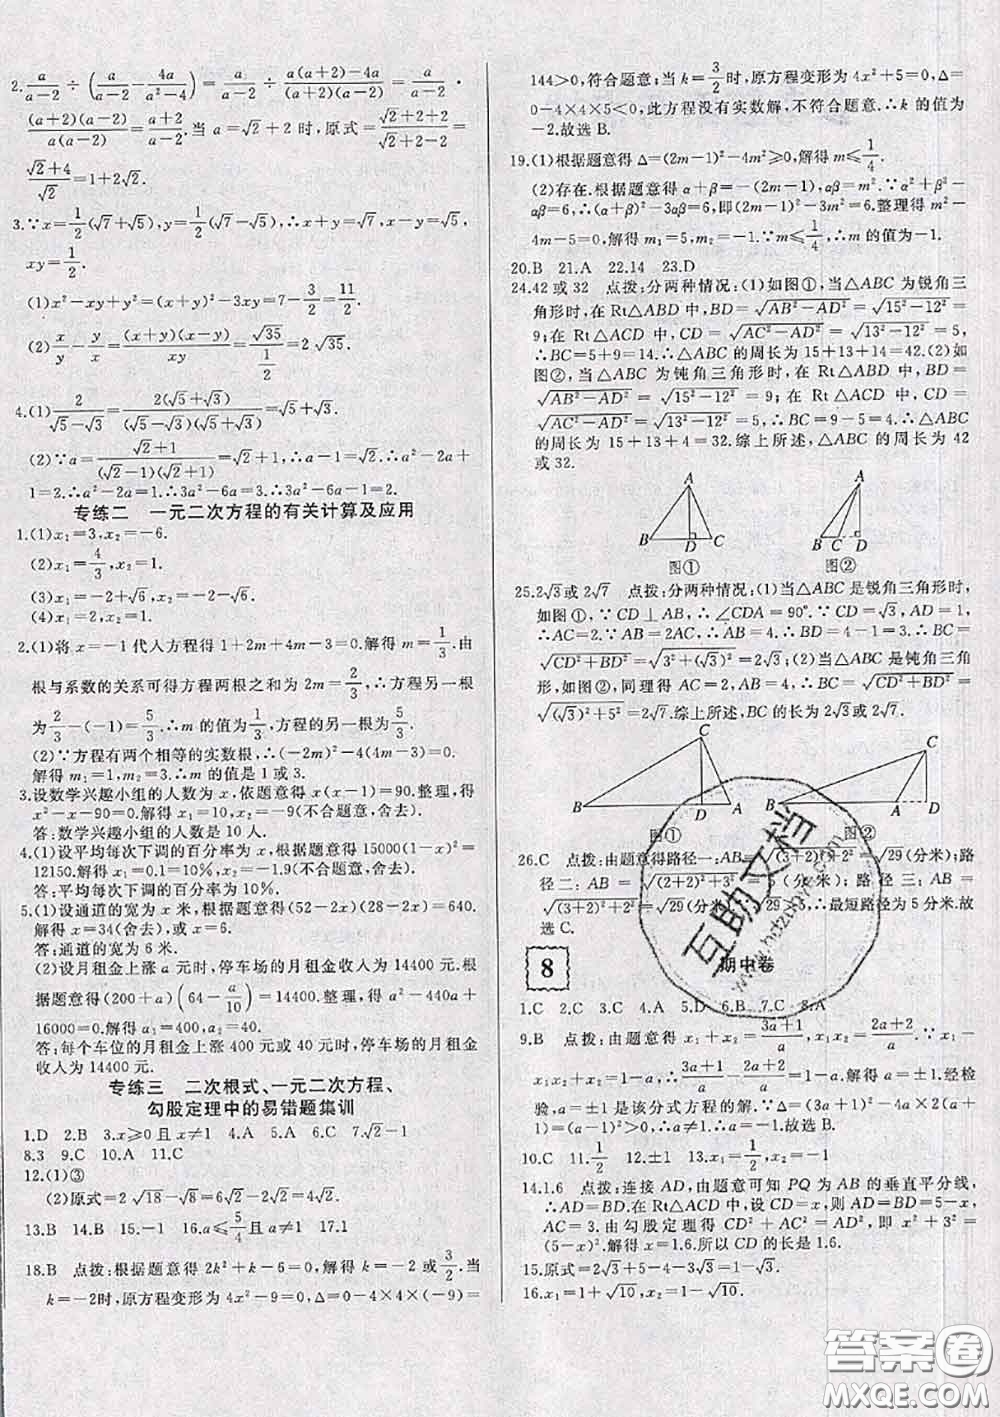 2.a/(a-2)÷(a/(a-2)-4a/(a²-4))=a/(a-2)÷(a(a+2)-4a)/((a+2)(a-2))=a/(a-2)·
((a+2)(a-2))/(a(a-2))=(a+2)/(a-2).当 a=√2+2时,原式=(√2+2+2)/(√2+2-2)=
(√2+4)/√2=1+2√2.
3.∵x=1/2(√7+√5),y=1/2(√7-√5),∴x+y=√7,x-y=√5,
xy=1/2.
(1)x²-xy+y²=(x+y)²-3xy=7-3/2=11/2.
(2)x/y-y/x=((x+y)(x-y))/xy=√35/(1/2)=2√35.
4.(1)2/(√5-√3)=2(√5+√3)/((√5-√3)(√5+√3))=√5+√3.
(2)∵a=(√2+1)/((√2-1)(√2+1))=√2+1,∴a-1=√2.∴a²-2a+
1=2.∴a²-2a=1.∴3a²-6a=3.∴3a²-6a-1=2.
专练二 一元二次方程的有关计算及应用
1.(1)x₁=3,x₂=-6.
(2)x₁=4/3,x₂=2.
(3)x₁=-2+√6,x₂=-2-√6.
(4)x₁=2,x₂=1.
2.(1)将 x=-1 代入方程得 1+2m+4m-3=0.解得 m=1/3.由
根与系数的关系可得方程两根之和为 2m=2/3,∴方程另一根
为2/3-(-1)=5/3.∴m 的值为1/3,方程的另一根为5/3.
(2)∵方程有两个相等的实数根,∴(-2m)²-4(4m-3)=0.
解得 m₁=1,m₂=3.∴m 的值是 1 或 3.
3.设数学兴趣小组的人数为 x,依题意得 x(x-1)=90.整理,得
x²-x-90=0.解得 x₁=10,x₂=-9(不合题意,舍去).
答:数学兴趣小组的人数是 10 人.
4.(1)设平均每次下调的百分率为 x,根据题意得 15000(1-x)²=
12150.解得 x₁=0.1=10%,x₂=-1.9(不合题意,舍去).
答:平均每次下调的百分率为 10%.
5.(1)设通道的宽为 x 米,根据题意得(52-2x)(28-2x)=640.
解得 x=34(舍去),或 x=6.
答:通道的宽为 6 米.
(2)设月租金上涨 a 元,停车场的月租金收入为 14400 元.根
据题意得(200+a)(64-a/10)=14400.整理,得 a²-440a+
16000=0.解得 a₁=400,a₂=40.
答:每个车位的月租金上涨 400 元或 40 元时,停车场的月租金
收入为 14400 元.
专练三 二次根式、一元二次方程、
勾股定理中的易错题集训
1.D 2.B 3.x≥0且x≠1 4.A 5.A 6.C 7.√2-1
8.3 9.C 10.A 11.C
12.(1)③
(2)原式=2√18-√8=6√2-2√2=4√2.
13.B 14.B 15.-1 16.a≤5/4且a≠1 17.1
18.B 点拨:根据题意得 2k²+k-6=0,解得 k=-2 或3/2.当
k=-2时,原方程变形为 4x²-9=0,Δ=0-4×4×(-9)=
144>0,符合题意;当 k=3/2时,原方程变形为 4x²+5=0,Δ=
0-4×4×5<0,此方程没有实数解,不符合题意.∴k 的值为
-2.故选 B.
19.(1)根据题意得 Δ=(2m-1)²-4m²≥0,解得 m≤1/4.
(2)存在.根据题意得 α+β=-(2m-1),αβ=m².∵α²+β²-
αβ=6,∴(α+β)²-3αβ=6,即(2m-1)²-3m²=6.整理得 m²-
4m-5=0,解得 m₁=5,m₂=-1.∵m≤1/4,∴m 的值为-1.
20.B 21.A 22.14 23.D
24.42 或 32 点拨:分两种情况:(1)如图①,当△ABC 为锐角三
角形时,在 Rt△ABD 中,BD=√(AB²-AD²)=√(15²-12²)=
9;在 Rt△ACD 中,CD=√(AC²-AD²)=√(13²-12²)=5,
∴BC=5+9=14.∴△ABC 的周长为 15+13+14=42.(2)如
图②,当△ABC 为钝角三角形时,在 Rt△ABD 中,BD=
√(AB²-AD²)=√(15²-12²)=9;在 Rt△ACD 中,CD=
√(AC²-AD²)=√(13²-12²)=5,∴BC=9-5=4.∴△ABC
的周长为 15+13+4=32.综上所述,△ABC 的周长为 42
或 32.
A B D C 图① A B C D 图②
25.2√3或2√7 点拨:分两种情况:(1)当△ABC 是锐角三角形时,
如图①,∵CD⊥AB,∴∠CDA=90°.∵CD=√3,AD=1,
∴AC=2.∵AB=2AC,∴AB=4.∴BD=4-1=3.∴BC=
√(CD²+BD²)=√(3²+(√3)²)=2√3;(2)当△ABC 是钝角三角
形,如图②,同理得 AC=2,AB=4.∴BC=√(CD²+BD²)=
√((√3)²+5²)=2√7.综上所述,BC 的长为 2√3或 2√7.
C B D A 图① C B A D 图②
26.C 点拨:由题意得路径一:AB=√((3+2)²+2²)=√29(分米);路
径二:AB=√((2+2)²+3²)=5(分米);路径三:AB=
√((3+2)²+2²)=√29(分米).∵√29>5,∴最短路径为 5 分米.故
选 C.
8 期中卷
1.C 2.C 3.C 4.A 5.D 6.B 7.C 8.A
9.B 点拨:由题意得 x₁+x₂=(3a+1)/a,x₁x₂=(2a+2)/a.∵x₁-
x₁x₂+x₂=1-a,∴(3a+1)/a-(2a+2)/a=1-a.解得 a=±1.经检
验,a=±1是该分式方程的解.∵Δ=(3a+1)²-4a(2a+2)=
(a-1)²>0,∴a≠1.∴a=-1.故选B.
10.C 11.1/2 12.±1 13.x₁=1/2,x₂=1
14.1.6 点拨:连接 AD,由题意可知 PQ 为 AB 的垂直平分线,
∴AD=BD.在 Rt△ACD 中,设 CD=x,则 AD=BD=5-x,
AC=3.由勾股定理得 CD²+AC²=AD²,即 x²+3²=
(5-x)².解得 x=1.6.所以 CD 的长是 1.6.
15.原式=2√3+5-4√3=5-2√3.
16.x₁=1+√10,x₂=1-√10.
互助文档
www.hdzuoye.com
答案圈
MXQE.COM